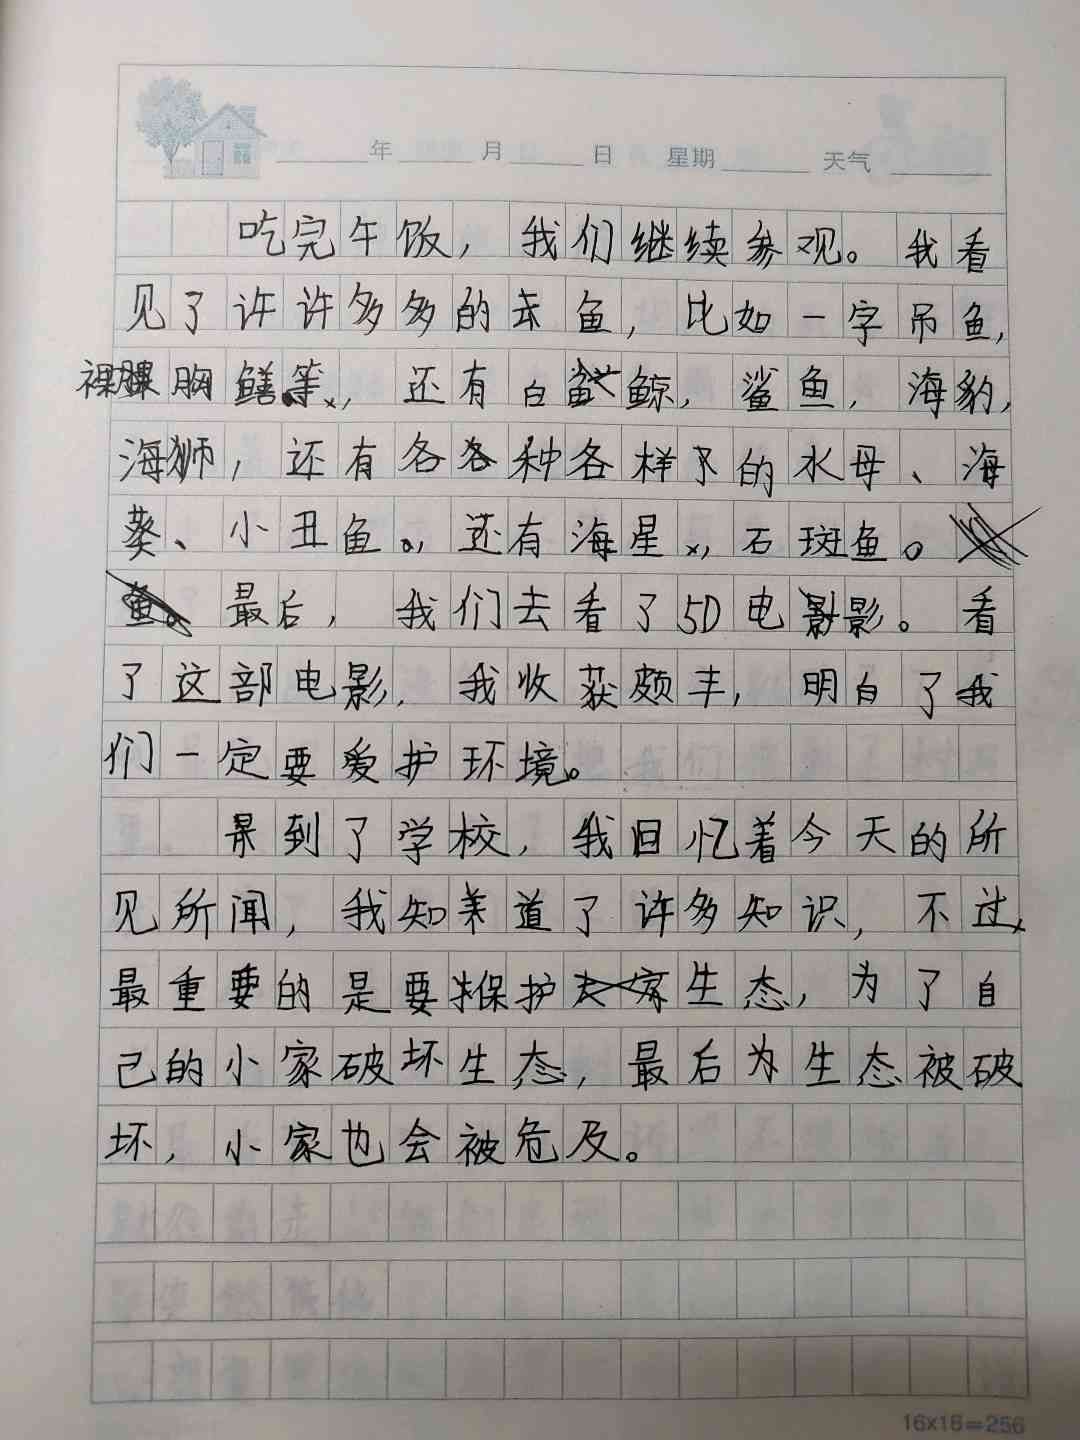 年 月 日 星期 天气
吃完午饭，我们继续参观。我看
见了许许多多的鱼，比如一字吊鱼，
裸胸鳝等，还有白鲸，鲨鱼，海豹，
海狮，还有各各种各样的水母、海
葵、小丑鱼。，还有海星，石斑鱼。
最后，我们去看了5D电影。看
了这部电影，我收获颇丰，明白了我
们一定要爱护环境。
到了学校，我回忆着今天的所
见所闻，我知道了许多知识，不过，
最重要的是要保护生态，为了自
己的小家破坏生态，最后为生态被破
坏，小家也会被危及。
16×16=256